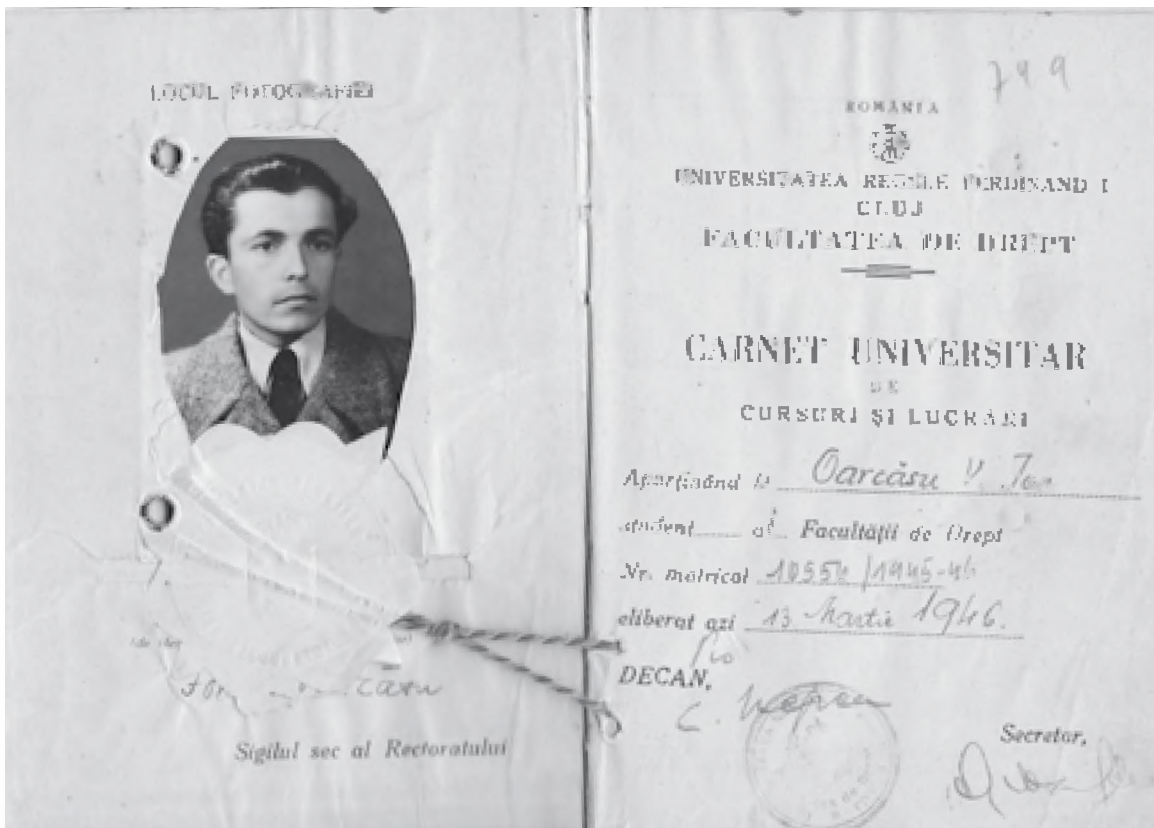 LOCUL FOTOGRAFIEI
Sigilul sec al Rectoratului
749
ROMÂNIA
UNIVERSITATEA REGELE FERDINAND I
CLUJ
FACULTATEA DE DREPT
CARNET UNIVERSITAR
DE
CURSURI ȘI LUCRĂRI
Aparținând Oarcăsu V. Ion
student al Facultății de Drept
Nr. matricol /1945-46
eliberat azi 13 Martie 1946.
DECAN,
Secretar,